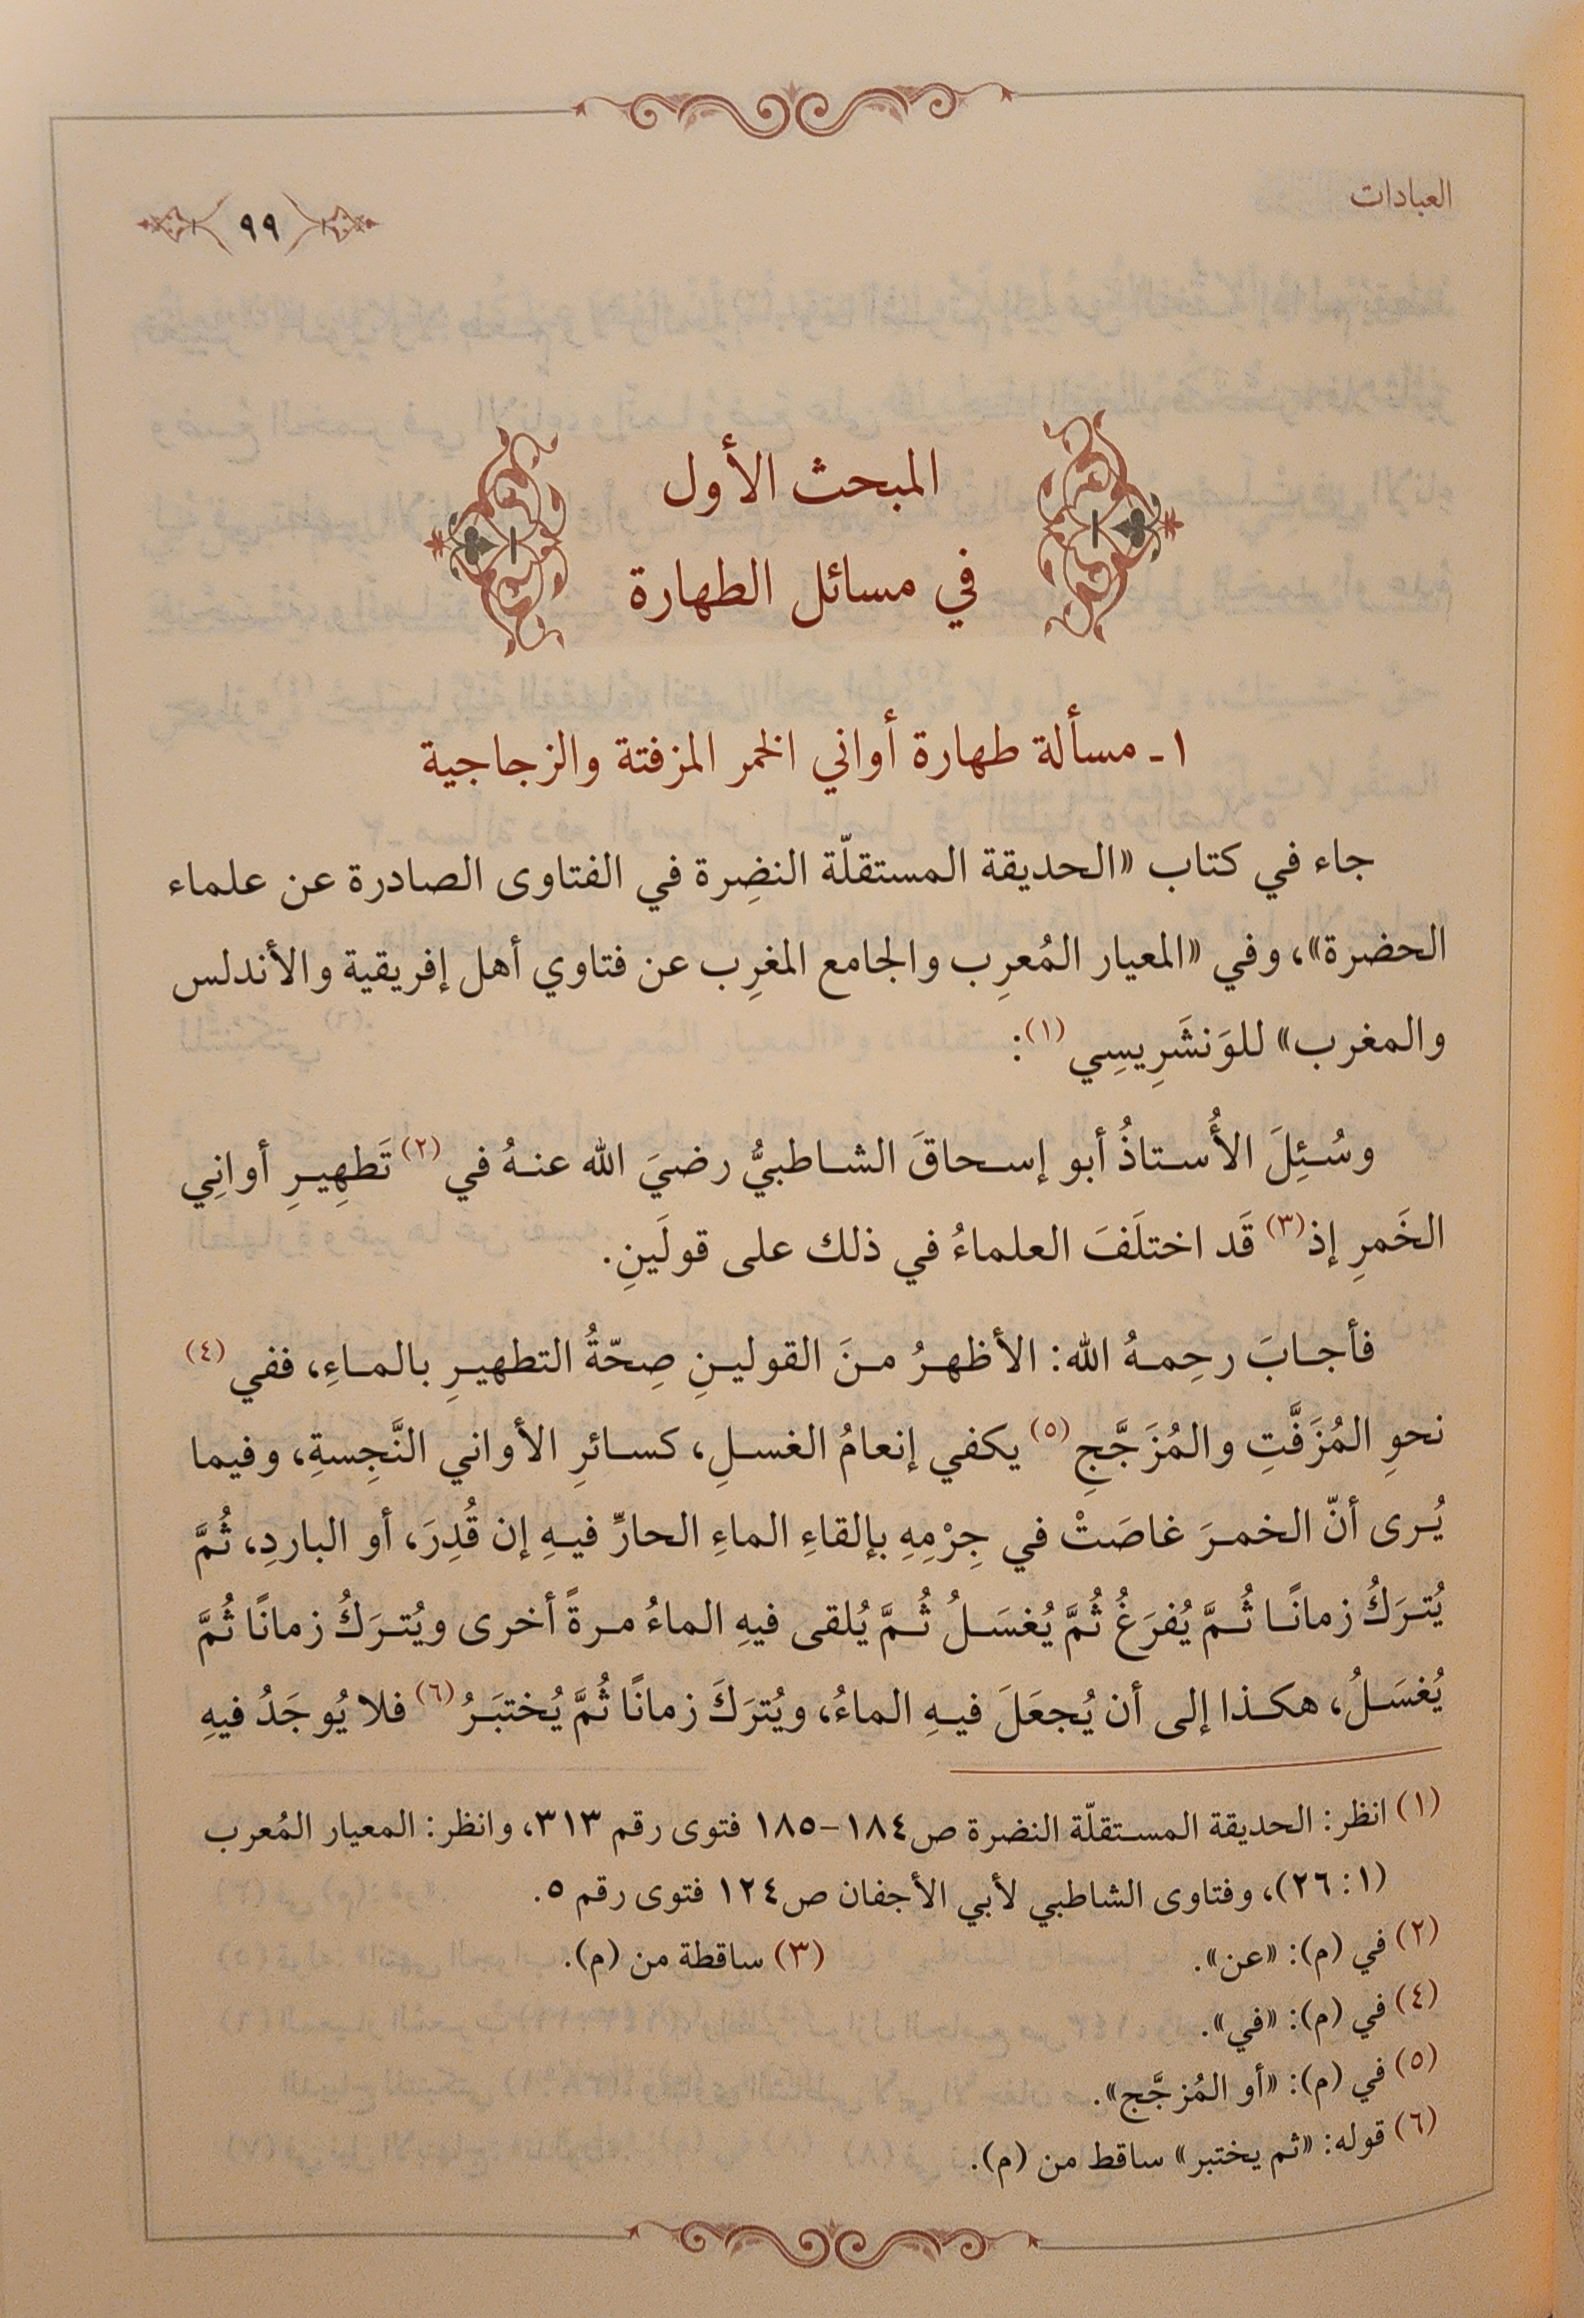 العبادات
٩٩
المبحث الأول
في مسائل الطهارة
١ ـ مسألة طهارة أواني الخمر المزفتة والزجاجية
جاء في كتاب «الحديقة المستقلّة النضِرة في الفتاوى الصادرة عن علماء
الحضرة»، وفي «المعيار المُعرِب والجامع المغرِب عن فتاوي أهل إفريقية والأندلس
والمغرب» للوَنشَرِيسِي(١):
وسُئِلَ الأُستاذُ أبو إسحاقَ الشاطبيُّ رضيَ الله عنهُ في(٢) تَطهِيرِ أوانِي
الخَمرِ إذ(٣) قَد اختلَفَ العلماءُ في ذلك على قولَينِ.
فأجابَ رحِمهُ الله: الأظهرُ منَ القولينِ صِحّةُ التطهيرِ بالماءِ، ففي(٤)
نحوِ المُزَفَّتِ والمُزَجَّجِ(٥) يكفي إنعامُ الغسلِ، كسائرِ الأواني النَّجِسةِ، وفيما
يُرى أنّ الخمرَ غاصَتْ في جِرْمِهِ بإلقاءِ الماءِ الحارِّ فيهِ إن قُدِرَ، أو الباردِ، ثُمَّ
يُترَكُ زمانًا ثُمَّ يُفرَغُ ثُمَّ يُغسَلُ ثُمَّ يُلقى فيهِ الماءُ مرةً أخرى ويُترَكُ زمانًا ثُمَّ
يُغسَلُ، هكذا إلى أن يُجعَلَ فيهِ الماءُ، ويُترَكَ زمانًا ثُمَّ يُختبَرُ(٦) فلا يُوجَدُ فيهِ
(١) انظر: الحديقة المستقلّة النضرة ص١٨٤-١٨٥ فتوى رقم ٣١٣، وانظر: المعيار المُعرب
(١: ٢٦)، وفتاوى الشاطبي لأبي الأجفان ص١٢٤ فتوى رقم ٥.
(٢) في (م): «عن». (٣) ساقطة من (م).
(٤) في (م): «في».
(٥) في (م): «أو المُزجَّج».
(٦) قوله: «ثم يختبر» ساقط من (م).